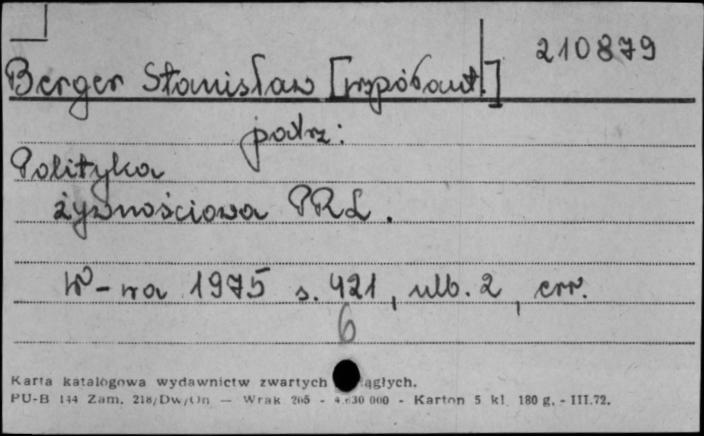 210879
Berger Stanisław [współaut.]
patrz:
Polityka
żywnościowa PRL.
W-wa 1975 s. 421, ulb. 2, err.
6
Karta katalogowa wydawnictw zwartych ągłych.
PU-B 144 Zam. 218/Dw/On — Wrak 205 - 4.630 000 - Karton 5 kl. 180 g. - III.72.